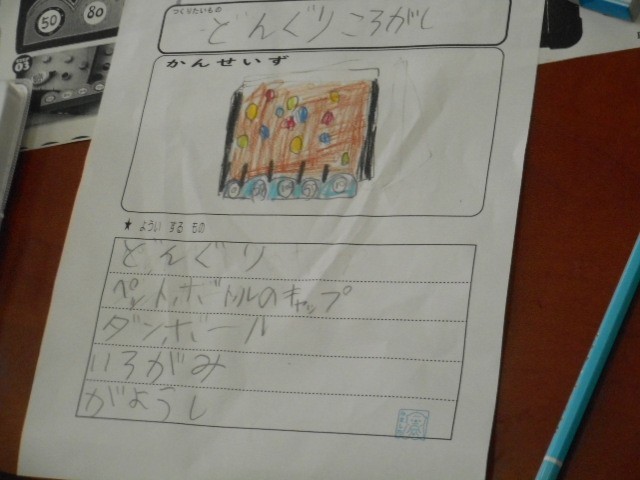 50
80
03
つくりたいもの
どんぐりころがし
かんせいず
★ よういするもの
どんぐり
ペットボトルのキャップ
ダンボール
いろがみ
がようし